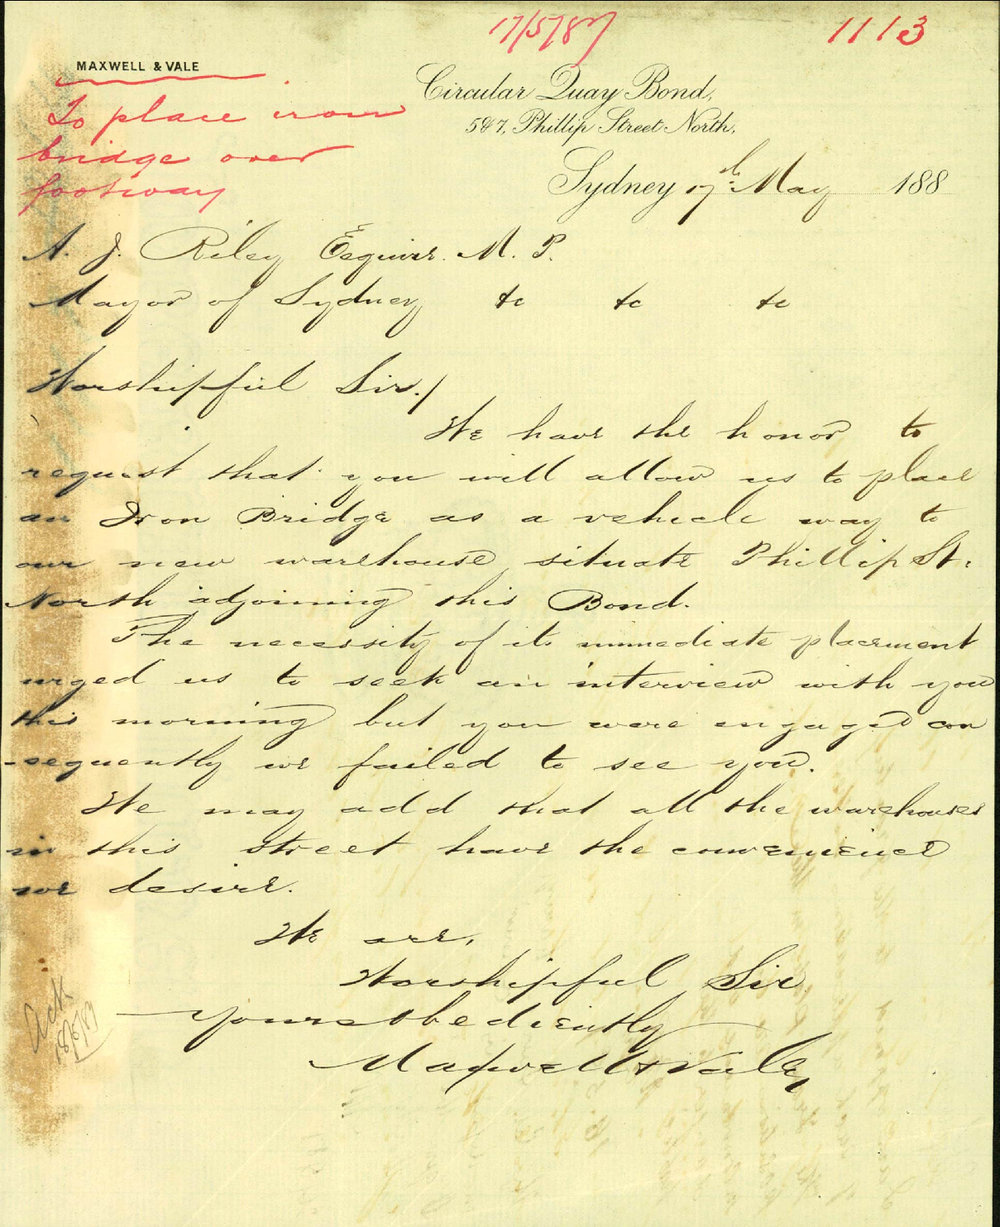 17/5/87
1113
MAXWELL & VALE
To place iron
bridge over
footway
Circular Quay Bond,
5 & 7, Phillip Street North,
Sydney 17th May 188
A. J. Riley Esquire. M. P.
Mayor of Sydney &c &c &c
Worshipful Sir,/
We have the honor to
request that you will allow us to place
an Iron Bridge as a vehicle way to
our new warehouse, situate Phillip St.
North adjoining this Bond.
The necessity of its immediate placement
urged us to seek an interview with you
this morning but you were engaged con
-sequently we failed to see you.
We may add that all the warehouses
in this street have the convenience
we desire.
We are,
Worshipful Sir
Yours obediently
Maxwell & Vale
Ack
18/5/87